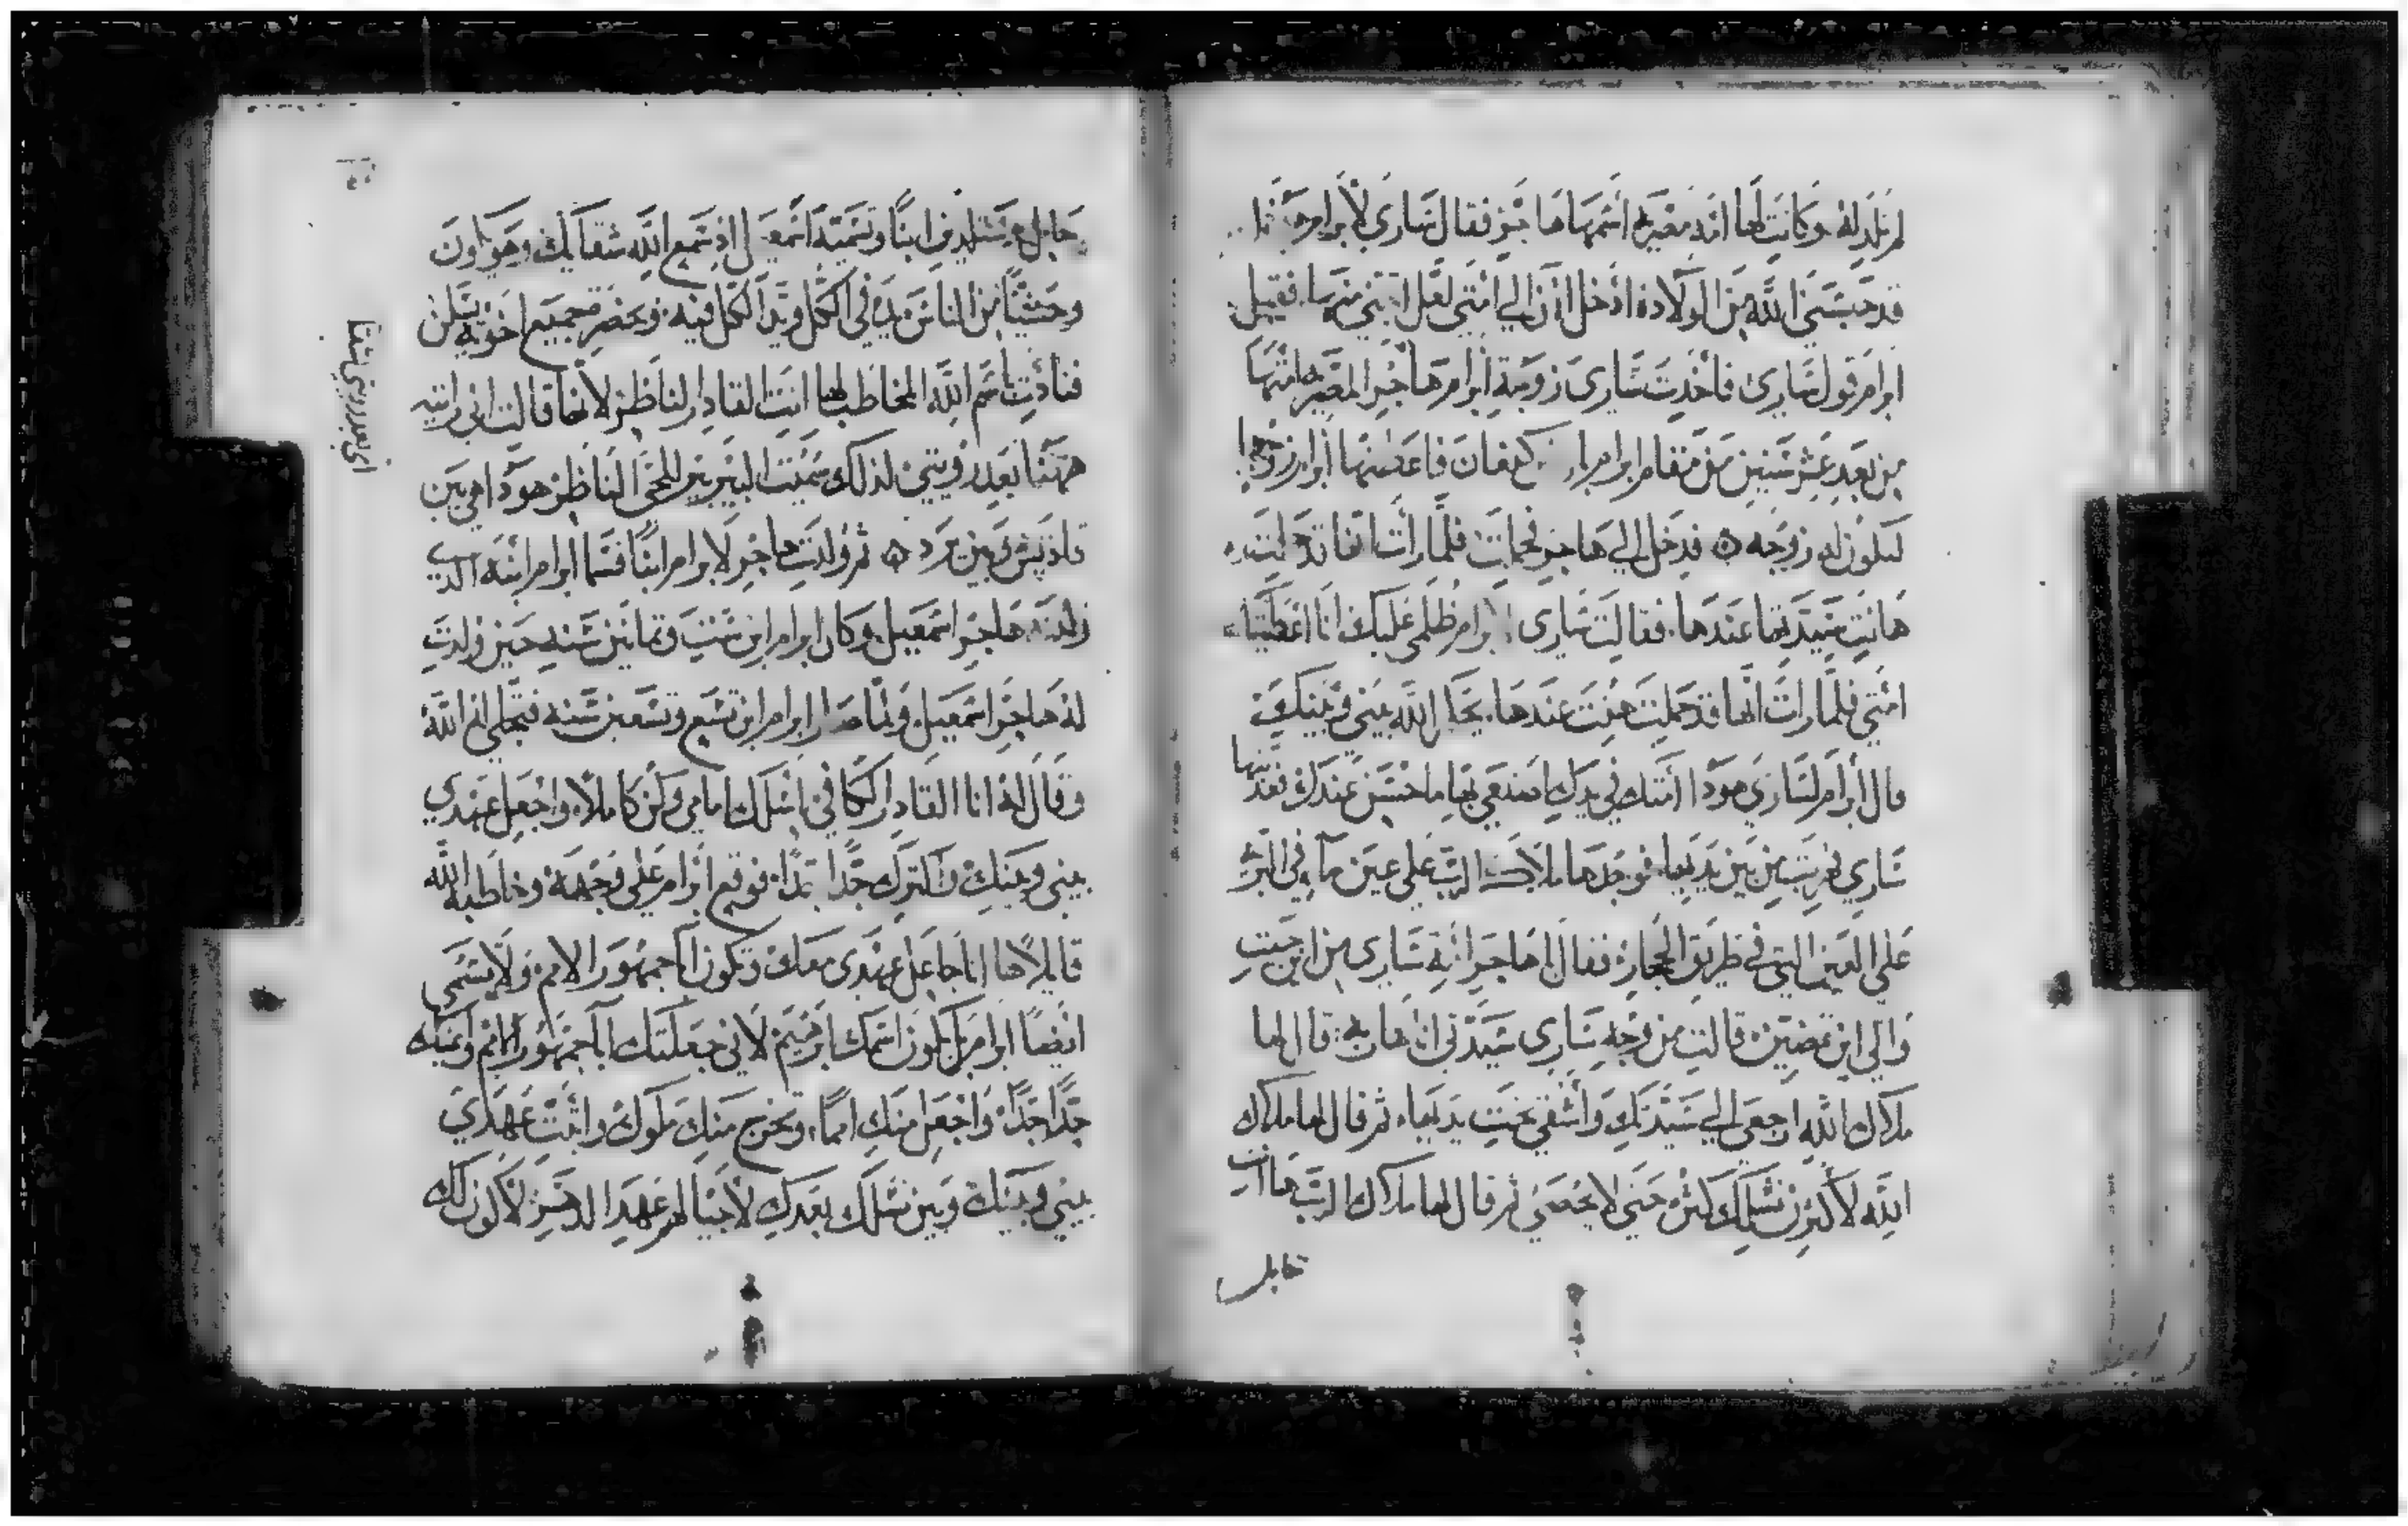 لم تلد له وكانت لها امه مصريه اسمها هاجر فقال ساري لابرام هوذا
قد حبسني الله من الولادة ادخل اذن الي امتي لعل ابتني منها فقبل
ابرام قول ساري فاخذت ساري زوجة ابرام هاجر المصريه امتها
من بعد عشر سنين من مقام ابرام كنعان فاعطتها ابرام زوجها
لتكون له زوجه فدخل الي هاجر فحملت فلما رات انها قد حملت
هانت سيدتها عندها فقالت ساري لابرام ظلمي عليك انا اعطيتك
امتي فلما رات انها قد حملت هنت عندها يحكم الله بيني وبينك
قال ابرام لساري هوذا امتك في يدك اصنعي بها ما حسن عندك فعذبتها
ساري فهربت من بين يديها فوجدها ملاك الرب علي عين ما في البر
علي العين التي في طريق الحجاز فقال لهاجر امة ساري من اين جيت
والي اين تمضين قالت من وجه ساري سيدتي انا هاربه قال لها
ملاك الله ارجعي الي سيدتك واشقي تحت يديها ثم قال لها ملاك
الله لاكثرن نسلك كثرة حتي لا يحصي ثم قال لها ملاك الرب ها انت
حامل
حامل وستلدين ابنا وتسميه اسمعيل اذ سمع الله شقايك وهو يكون
وحشيا من الناس يده في الكل ويد الكل فيه وبحضرة جميع اخوته يسكن
فنادت باسم الله المخاطب لها انت القادر الناظر لانها قالت اني رايته
ههنا بعد رويتي لذلك سميت البير بير الحي الناظر هوذا هي بين
قادش وبين برد ثم ولدت هاجر لابرام ابنا فسما ابرام ابنه الذي
ولدته هاجر اسمعيل وكان ابرام ابن ست وثمانين سنه حين ولدت
له هاجر اسمعيل ولما صار ابرام ابن تسع وتسعين سنه فتجلي له الله
وقال له انا القادر الكافي اسلك امامي وكن كاملا واجعل عهدي
بيني وبينك واكثرك جدا جدا فوقع ابرام علي وجهه وخاطبه الله
قايلا ها انا جاعل عهدي معك وتكون ابا جمهور الامم ولا يسمي
ايضا ابرام بل يكون اسمك ابرهيم لاني جعلتك ابا جمهور الامم وانميك
جدا جدا واجعل منك امما وتخرج منك ملوك واثبت عهدي
بيني وبينك وبين نسلك بعدك لاجيالهم عهد الدهر لاكون لك
اي بعد رويتي